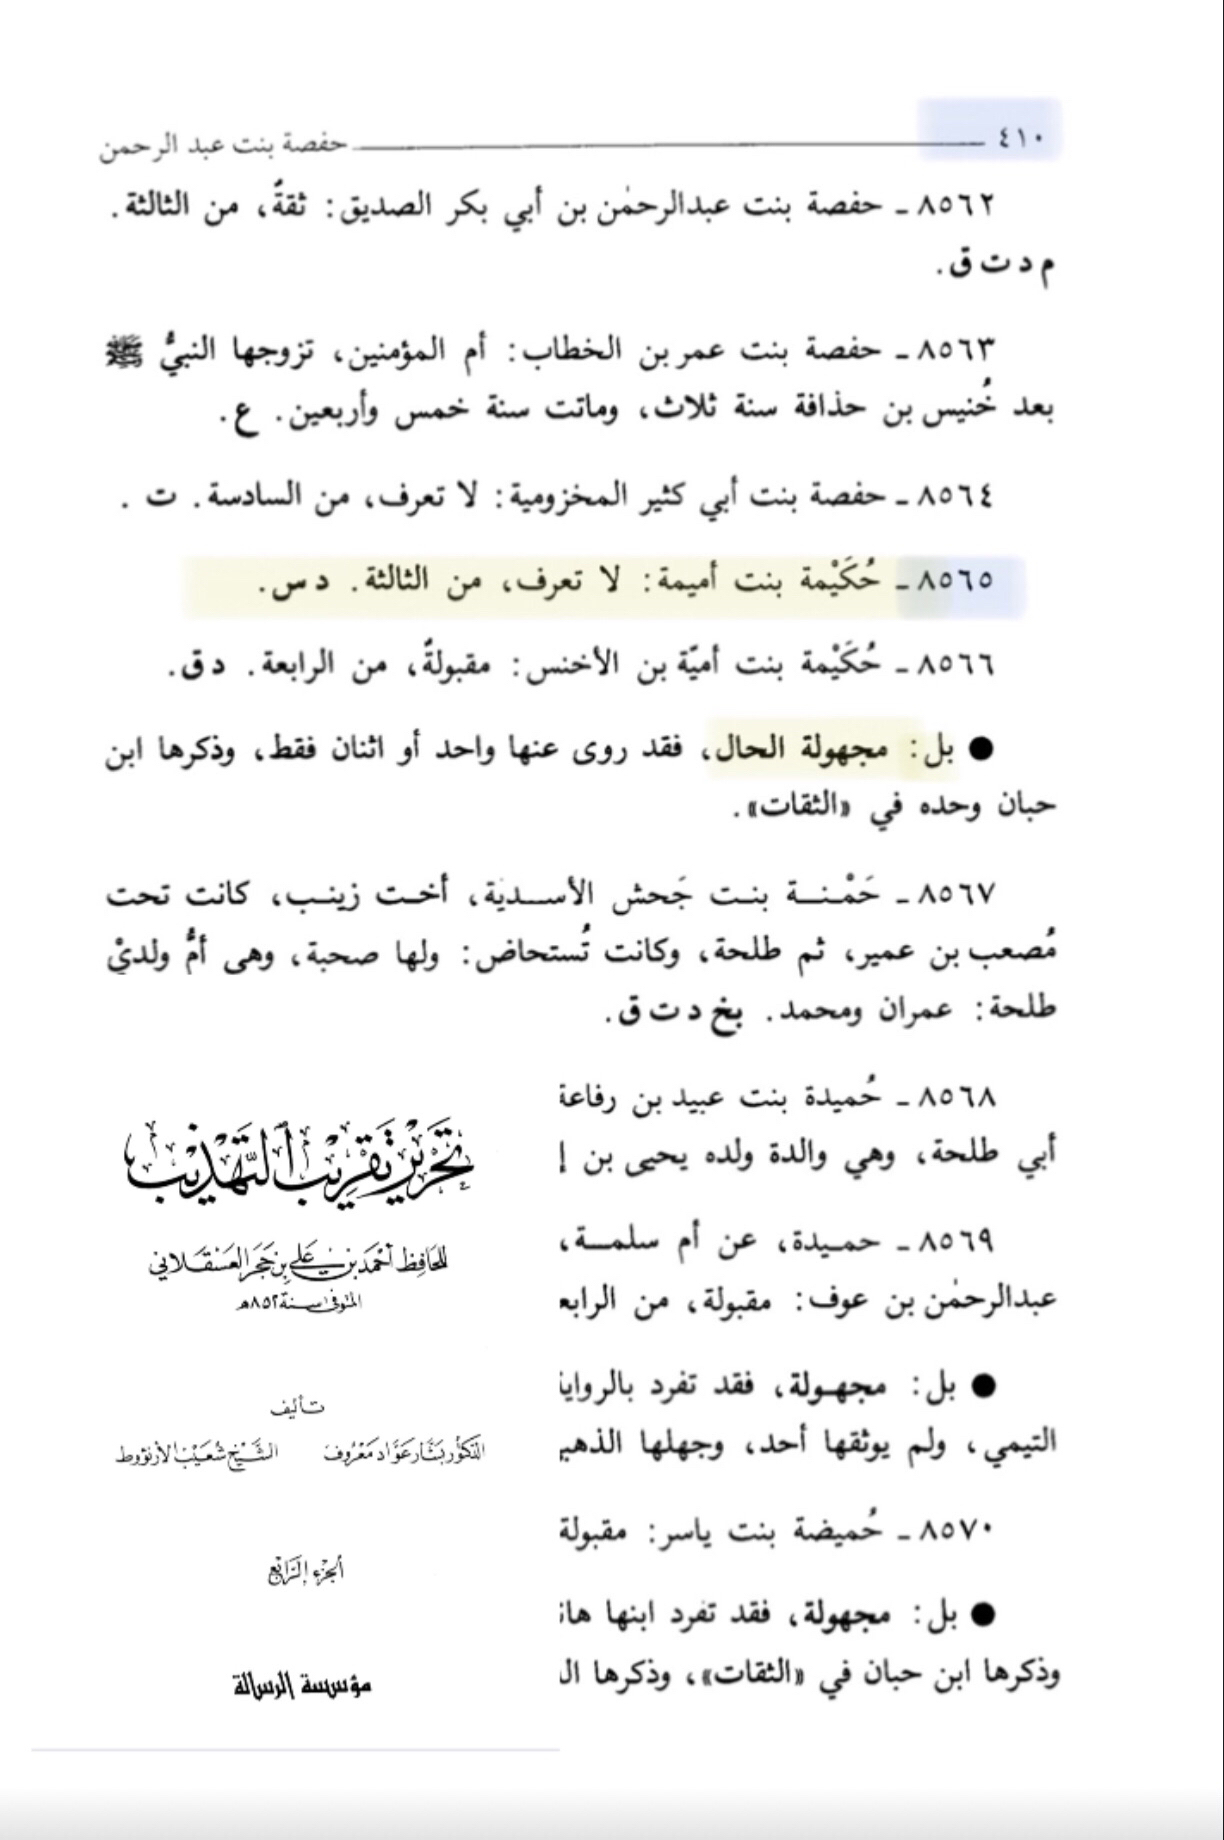 ٤١٠ حفصة بنت عبد الرحمن
٨٥٦٢ ـ حفصة بنت عبدالرحمٰن بن أبي بكر الصديق: ثقةٌ، من الثالثة.
م د ت ق.
٨٥٦٣ ـ حفصة بنت عمر بن الخطاب: أم المؤمنين، تزوجها النبيُّ ﷺ
بعد خُنيس بن حذافة سنة ثلاث، وماتت سنة خمس وأربعين. ع.
٨٥٦٤ ـ حفصة بنت أبي كثير المخزومية: لا تعرف، من السادسة. ت.
٨٥٦٥ ـ حُكَيْمة بنت أميمة: لا تعرف، من الثالثة. د س.
٨٥٦٦ ـ حُكَيْمة بنت أميّة بن الأخنس: مقبولةٌ، من الرابعة. د ق.
● بل: مجهولة الحال، فقد روى عنها واحد أو اثنان فقط، وذكرها ابن
حبان وحده في «الثقات».
٨٥٦٧ ـ حَمْنـة بنت جَحش الأسدية، أخت زينب، كانت تحت
مُصعب بن عمير، ثم طلحة، وكانت تُستحاض: ولها صحبة، وهى أمُّ ولديْ
طلحة: عمران ومحمد. بخ د ت ق.
٨٥٦٨ ـ حُميدة بنت عبيد بن رفاعة
أبي طلحة، وهي والدة ولده يحيى بن إ
٨٥٦٩ ـ حميدة، عن أم سلمة،
عبدالرحمٰن بن عوف: مقبولة، من الرابع
● بل: مجهولة، فقد تفرد بالرواية
التيمي، ولم يوثقها أحد، وجهلها الذهبي
٨٥٧٠ ـ حُميضة بنت ياسر: مقبولة
● بل: مجهولة، فقد تفرد ابنها هان
وذكرها ابن حبان في «الثقات»، وذكرها ال
تحرير تقريب التهذيب
للحافظ أحمد بن علي بن حجر العسقلاني
المتوفى سنة ٨٥٢هـ
تأليف
الدكتور بشار عواد معروف الشيخ شعيب الأرنؤوط
الجزء الرابع
مؤسسة الرسالة